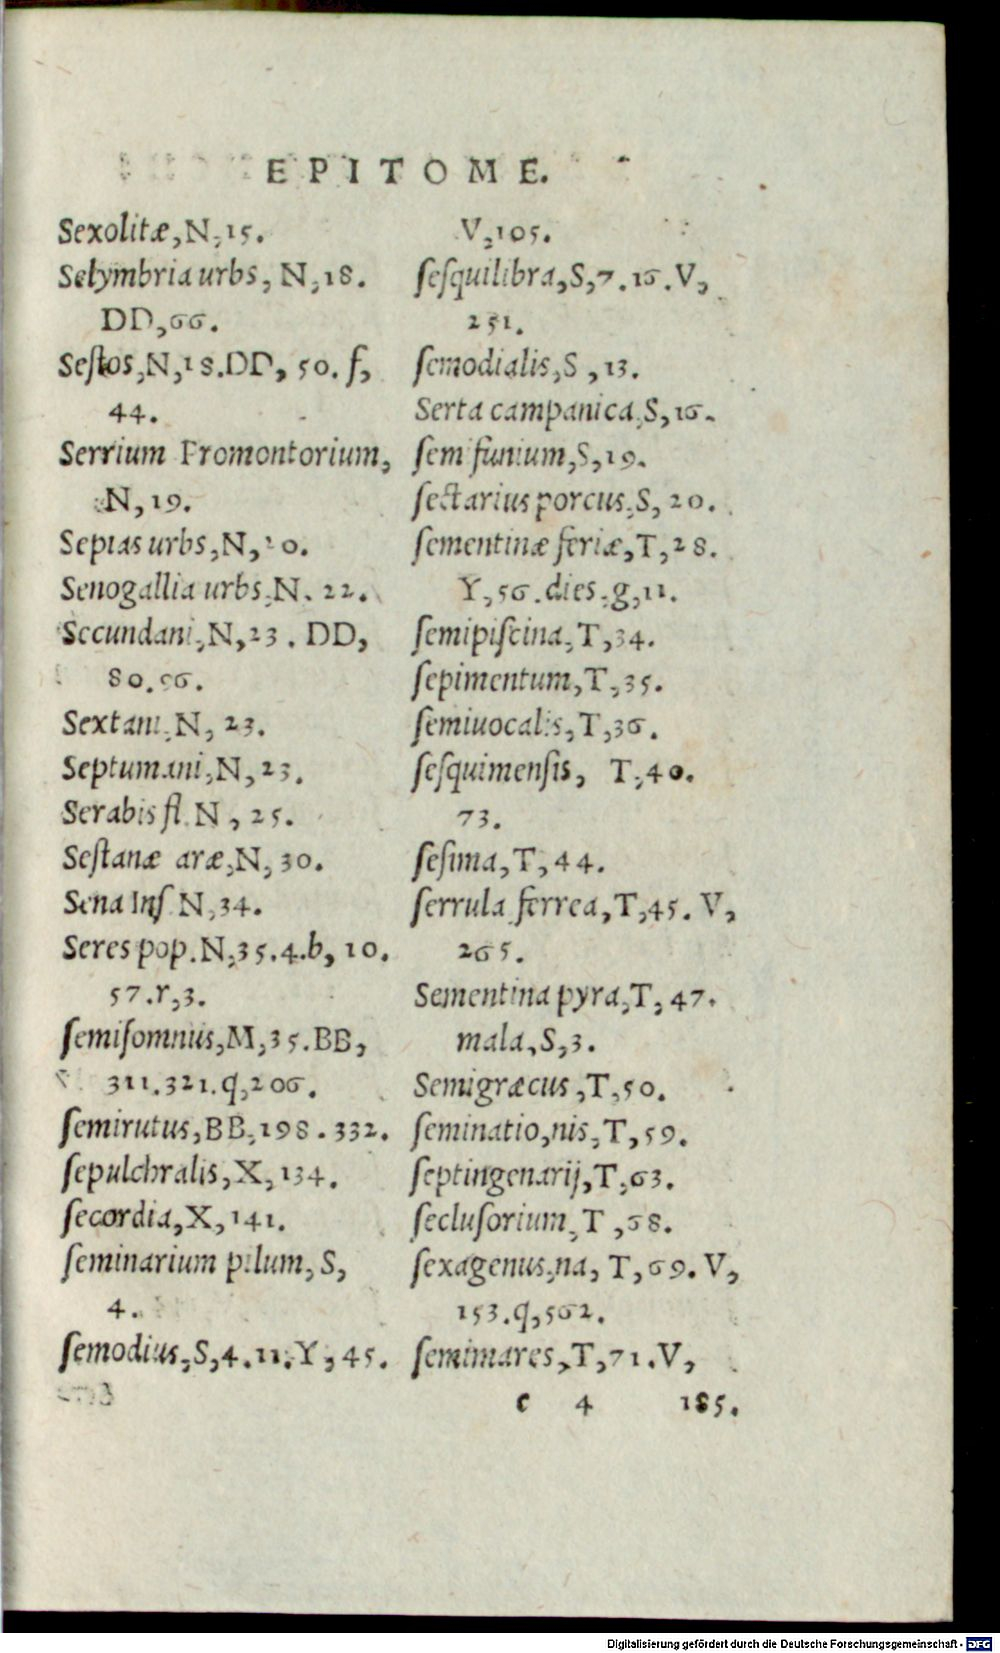 EPITOME.
Sexolitæ, N, 15.
Selymbria urbs, N, 18.
DD, 66.
Seſtos, N, 18. DD, 50. f,
44.
Serrium Promontorium,
N, 19.
Sepias urbs, N, 20.
Senogallia urbs, N. 22.
Secundani, N, 23. DD,
80. 96.
Sextani, N, 23.
Septumani, N, 23.
Serabis fl. N, 25.
Seſtanæ aræ, N, 30.
Sena Inſ N, 34.
Seres pop. N, 35. 4. b, 10.
57. r, 3.
ſemiſomnus, M, 35. BB,
311. 321. q, 206.
ſemirutus, BB, 198. 332.
ſepulchralis, X, 134.
ſecordia, X, 141.
ſeminarium pilum, S,
4.
ſemodius, S, 4. 11. Y, 45.
V, 105.
ſeſquilibra, S, 7. 16. V,
251.
ſemodialis, S, 13.
Serta campanica, S, 16.
ſemifunium, S, 19.
ſectarius porcus, S, 20.
ſementinæ feriæ, T, 28.
Y, 56. dies, g, 11.
ſemipiſcina, T, 34.
ſepimentum, T, 35.
ſemiuocalis, T, 36.
ſeſquimenſis, T, 40.
73.
ſeſima, T, 44.
ſerrula ferrea, T, 45. V,
265.
Sementina pyra, T, 47.
mala, S, 3.
Semigræcus, T, 50.
ſeminatio, nis, T, 59.
ſeptingenarij, T, 63.
ſecluſorium, T, 68.
ſexagenus, na, T, 69. V,
153. q, 562.
ſemimares, T, 71. V,
c 4 185.
Digitalisierung gefördert durch die Deutsche Forschungsgemeinschaft - DFG